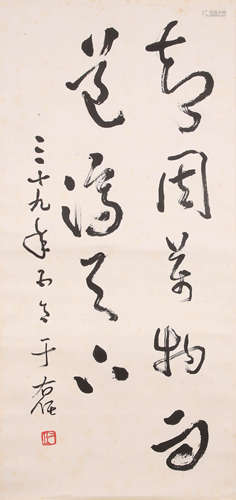 智周萬物而
道濟天下
三十九年元旦于右任